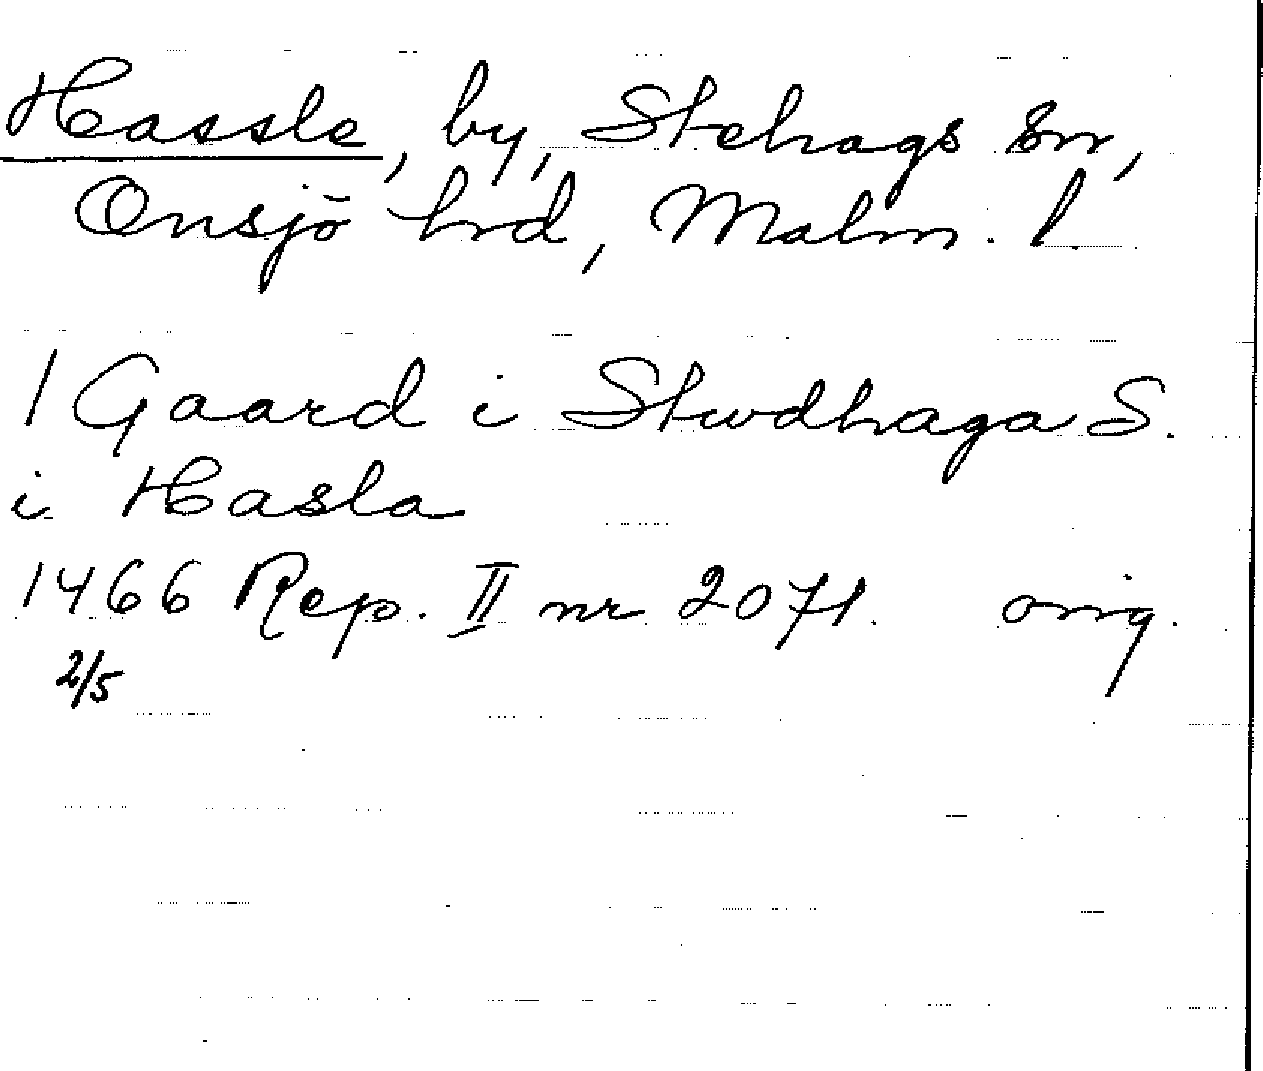 Hassle, by, Stehags sn,
Onsjö hrd, Malm. l.
1 Gaard i Stwdhaga S.
i Hasla
1466 Rep. II nr 2071. orig.
2/5